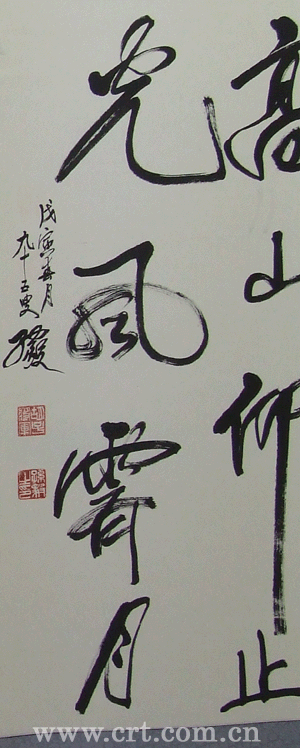 高山仰止
光風霽月
戊寅春月
九十五叟
www.crt.com.cn